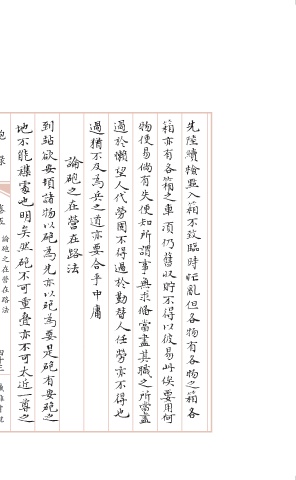 先陸續檢點入箱不致臨時忙亂但各物有各物之箱各
箱亦有各箱之車須仍舊收貯不得以彼易此俟要用何
物便易倘有失便知所謂事無求備當盡其職之所當盡
過於懶望人代勞固不得過於勤替人任勞亦不得也
過猶不及為兵之道亦要合乎中庸
論砲之在營在路法
到站欲安頓諸物以砲為先亦以砲為要是砲有安砲之
地不能襍處也明矣然砲不可重疊亦不可太近一尊之
論砲之在營在路法
四十三